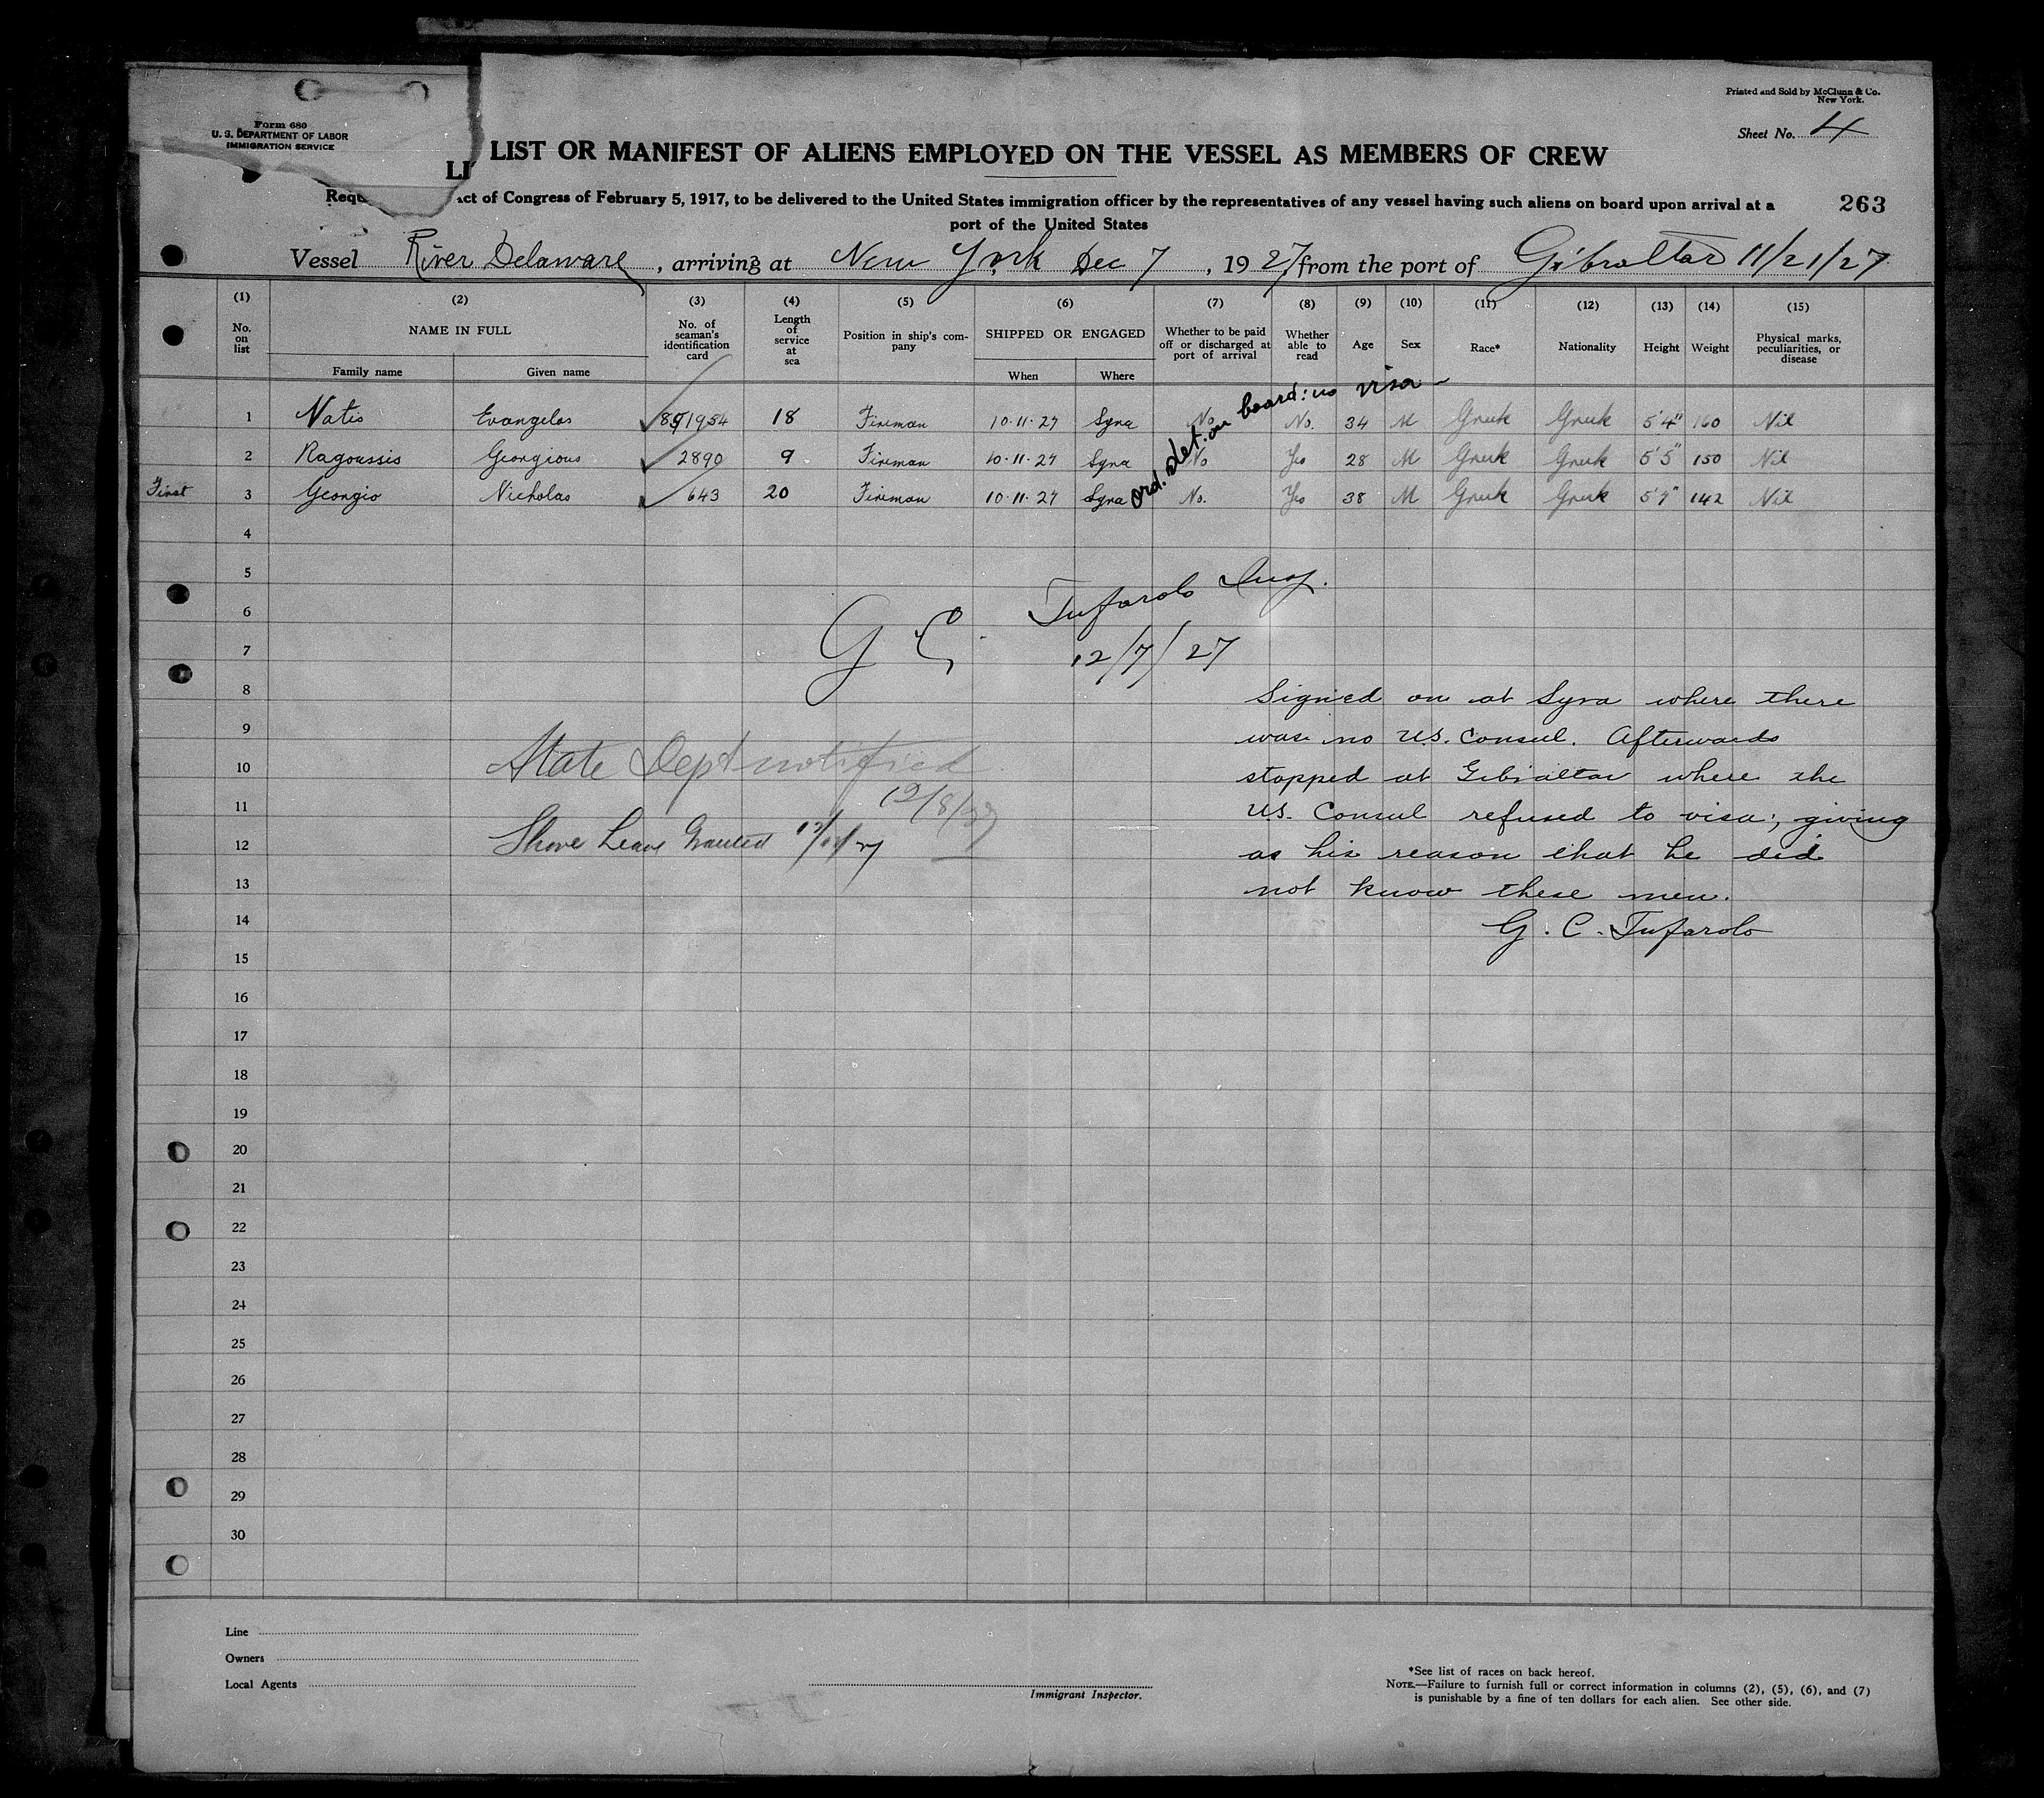 Printed and Sold by McClunn & Co.
New York.
Form 680
U. S. DEPARTMENT OF LABOR
IMMIGRATION SERVICE
Sheet No. 4
LI LIST OR MANIFEST OF ALIENS EMPLOYED ON THE VESSEL AS MEMBERS OF CREW
Requ ct of Congress of February 5, 1917, to be delivered to the United States immigration officer by the representatives of any vessel having such aliens on board upon arrival at a
port of the United States
263
Vessel River Delaware, arriving at New York Dec 7, 1927 from the port of Gibraltar 11/21/27
(1) (2) (3) (4) (5) (6) (7) (8) (9) (10) (11) (12) (13) (14) (15)
No. on list NAME IN FULL No. of seaman's identification card Length of service at sea Position in ship's company SHIPPED OR ENGAGED Whether to be paid off or discharged at port of arrival Whether able to read Age Sex Race* Nationality Height Weight Physical marks, peculiarities, or disease
Family name Given name When Where
ord. det. on board: no visa
1 Natis Evangelos 18 Fireman 10-11-27 Syra No No. 34 M Greek Greek 5'4" 160 Nil
2 Ragoussis Georgious 2890 9 Fireman 10-11-27 Syra No Yes 28 M Greek Greek 5'5" 150 Nil
First 3 Georgio Nicholas 643 20 Fireman 10-11-27 Syra No. Yes 38 M Greek Greek 142 Nil
4
5
6
G C. Tufarolo Insp.
7
12/7/27
8
Signed on at Syra where there
9
was no U.S. Consul. Afterwards
State Dept notified
10
stopped at Gibraltar where the
12/8/27
11
U.S. Consul refused to visa; giving
Shore Leave Granted
12
as his reason that he did
13
not know these men.
14
G. C. Tufarolo
15
16
17
18
19
20
21
22
23
24
25
26
27
28
29
30
Line
Owners
Local Agents
Immigrant Inspector.
*See list of races on back hereof.
NOTE.—Failure to furnish full or correct information in columns (2), (5), (6), and (7)
is punishable by a fine of ten dollars for each alien. See other side.